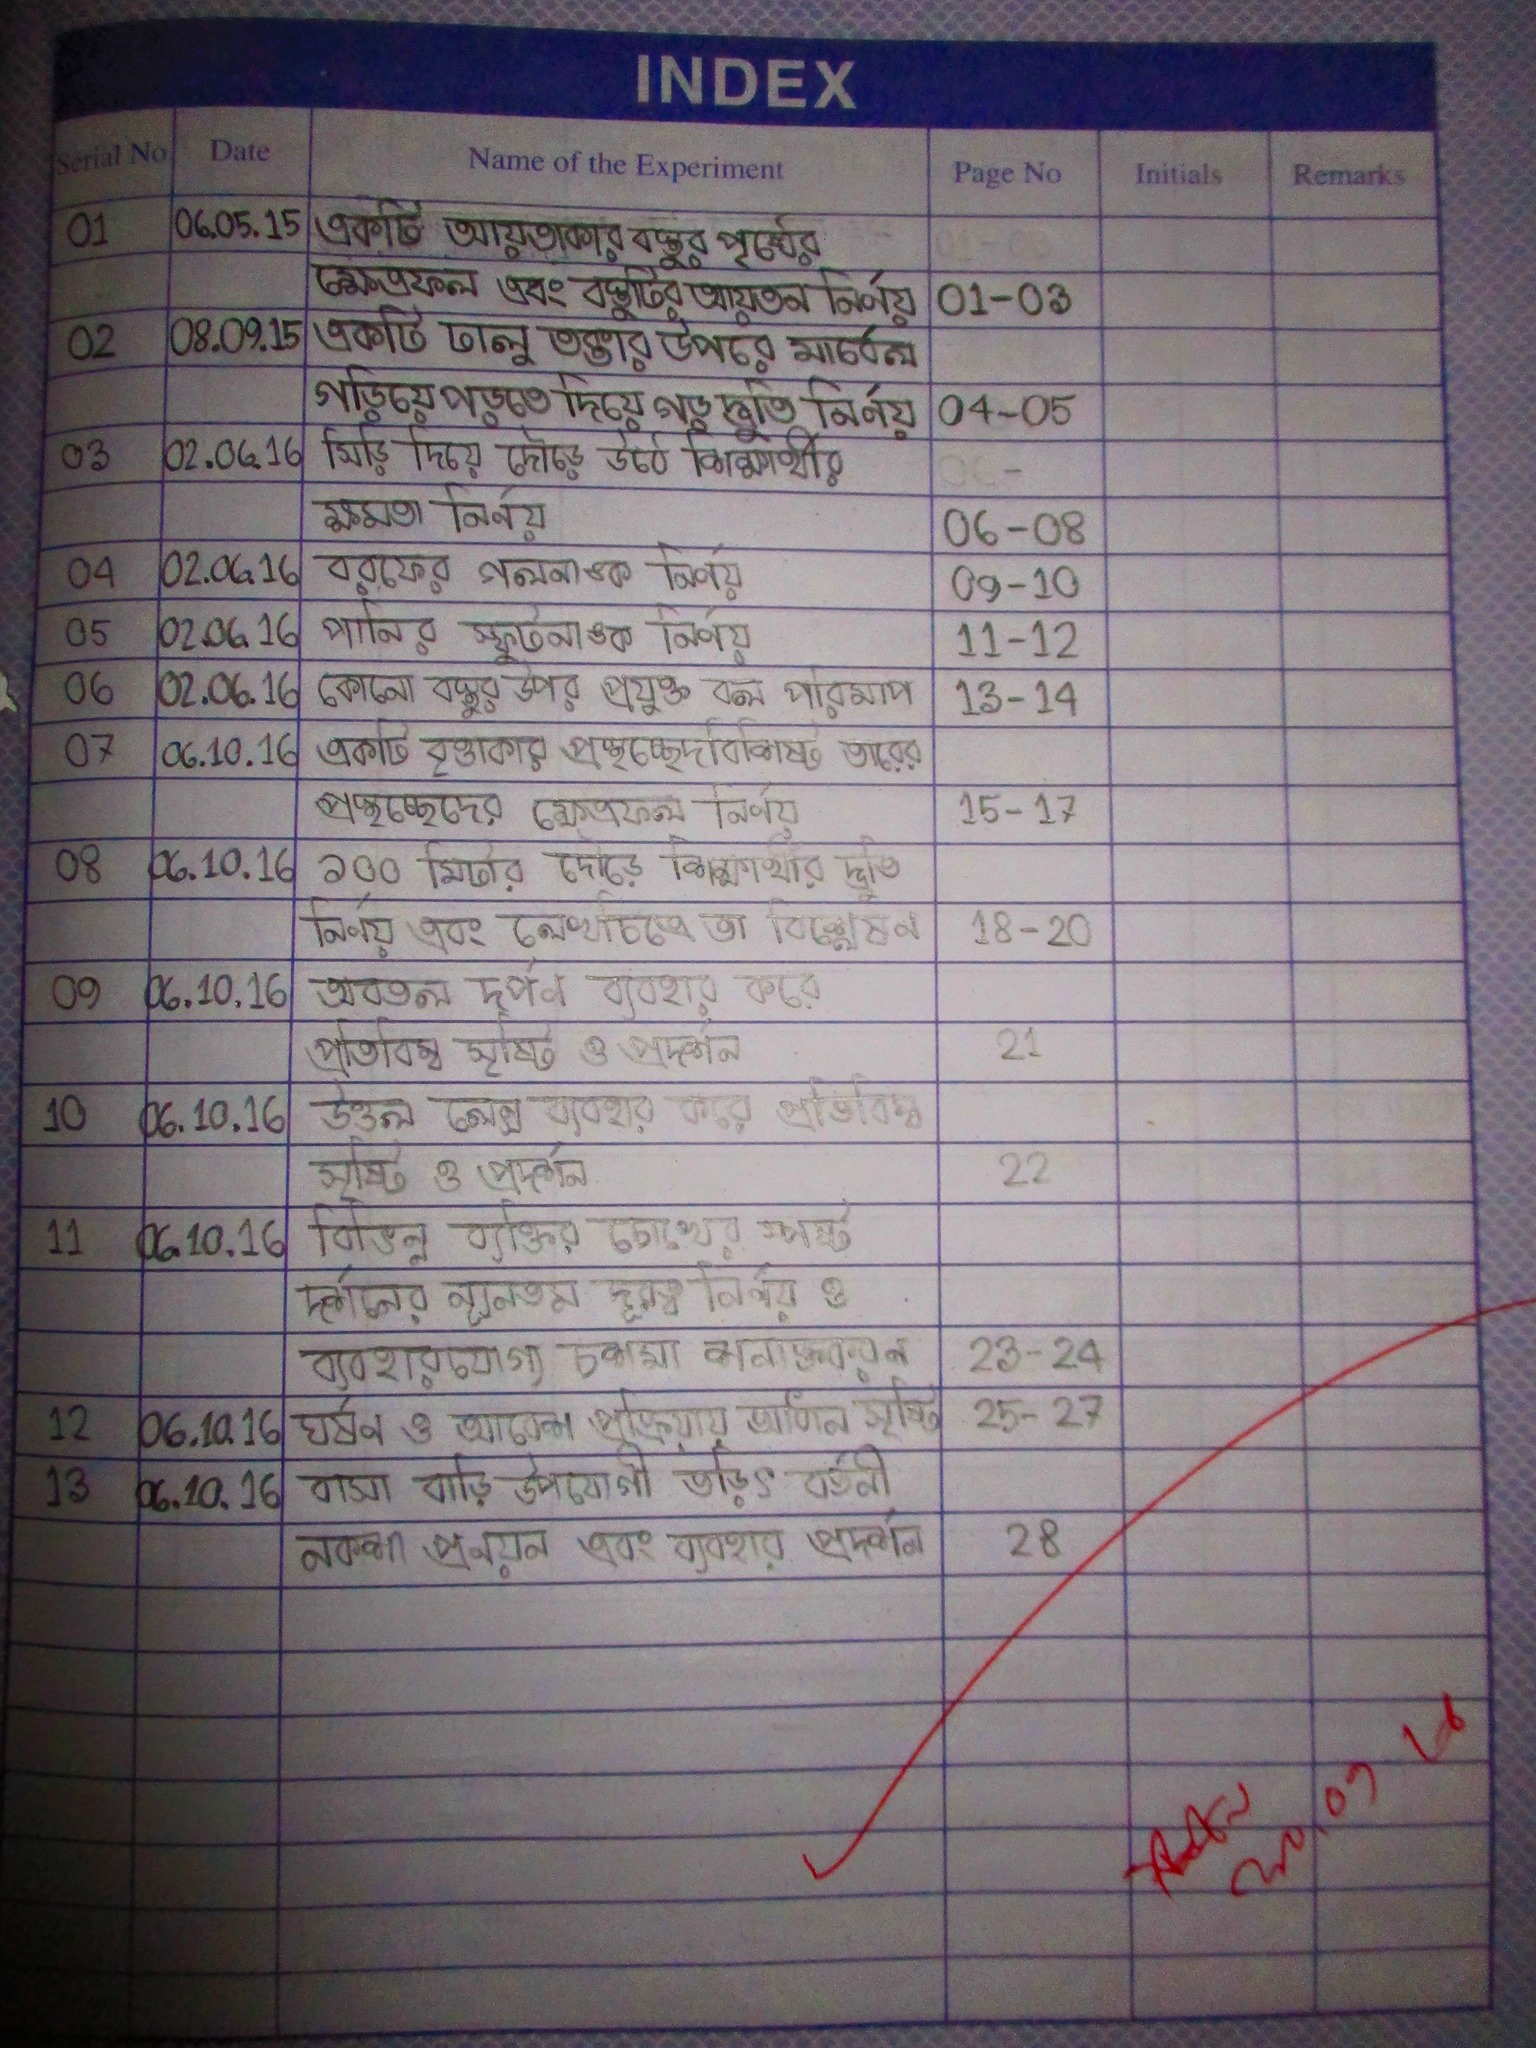 INDEX
Serial No Date Name of the Experiment Page No Initials Remarks
01 06.05.15 একটি আয়তাকার বস্তুর পৃষ্ঠের
ক্ষেত্রফল এবং বস্তুটির আয়তন নির্ণয় 01-03
02 08.09.15 একটি ঢালু তক্তার উপরে মার্বেল
গড়িয়ে পড়তে দিয়ে গড় দ্রুতি নির্ণয় 04-05
03 02.06.16 সিঁড়ি দিয়ে দৌড়ে উঠে শিক্ষার্থীর
ক্ষমতা নির্ণয় 06-08
04 02.06.16 বরফের গলনাঙক নির্ণয় 09-10
05 02.06.16 পানির স্ফুটনাঙক নির্ণয় 11-12
06 02.06.16 কোনো বস্তুর উপর প্রযুক্ত বল পরিমাপ 13-14
07 06.10.16 একটি বৃত্তাকার প্রস্থচ্ছেদবিশিষ্ট তারের
প্রস্থচ্ছেদের ক্ষেত্রফল নির্ণয় 15-17
08 06.10.16 ১০০ মিটার দৌড়ে শিক্ষার্থীর দ্রুতি
নির্ণয় এবং লেখচিত্রে তা বিশ্লেষন 18-20
09 06.10.16 অবতল দর্পন ব্যবহার করে
প্রতিবিম্ব সৃষ্টি ও প্রদর্শন 21
10 06.10.16 উত্তল লেন্স ব্যবহার করে প্রতিবিম্ব
সৃষ্টি ও প্রদর্শন 22
11 06.10.16 বিভিন্ন ব্যক্তির চোখের স্পষ্ট
দর্শনের ন্যূনতম দূরত্ব নির্ণয় ও
ব্যবহারযোগ্য চশমা শনাক্তকরন 23-24
12 06.10.16 ঘর্ষন ও আবেশ প্রক্রিয়ায় আধান সৃষ্টি 25-27
13 06.10.16 বাসা বাড়ি উপযোগী তড়িৎ বর্তনী
নকশা প্রনয়ন এবং ব্যবহার প্রদর্শন 28